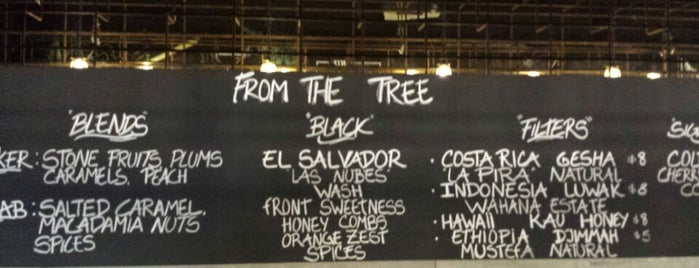 FROM THE TREE
"BLENDS"
KER: STONE FRUITS, PLUMS
CARAMELS, PEACH
AB: SALTED CARAMEL,
MACADAMIA NUTS
SPICES
"BLACK"
EL SALVADOR
"LAS NUBES"
WASH
FRONT SWEETNESS
HONEY COMBS
ORANGE ZEST
SPICES
"FILTERS"
· COSTA RICA GESHA $8
LA PIRA NATURAL
· INDONESIA LUWAK $8
WAHANA ESTATE
· HAWAII KAU HONEY $8
· ETHIOPIA DJIMMAH $5
MUSTEFA NATURAL
CHERR